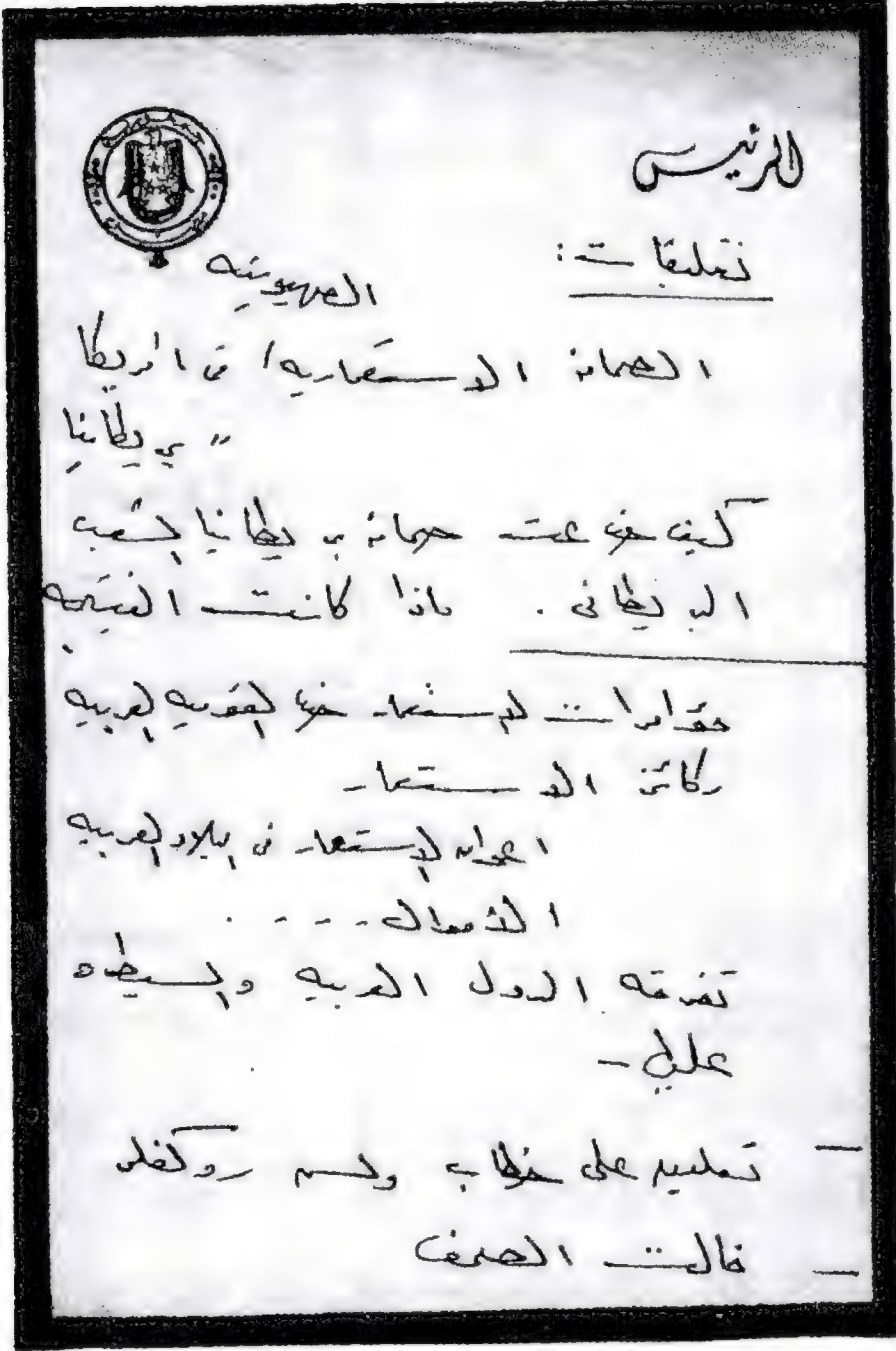 الرئيس
تعليقات:
الصهيونيه
الصحافه الاستعماريه / في امريكا
" بريطانيا
كيف خدعت صحافة بريطانيا الشعب
البريطاني . ماذا كانت النتيجه
مؤامرات الاستعمار ضد القوميه العربيه
ركائز الاستعمار
اعوان الاستعمار في البلاد العربيه
الأموال - - - .
تفرقه الدول العربيه والسيطره
عليها -
— تعليق على خطاب ولسن روكفلر
— قالت الصحف